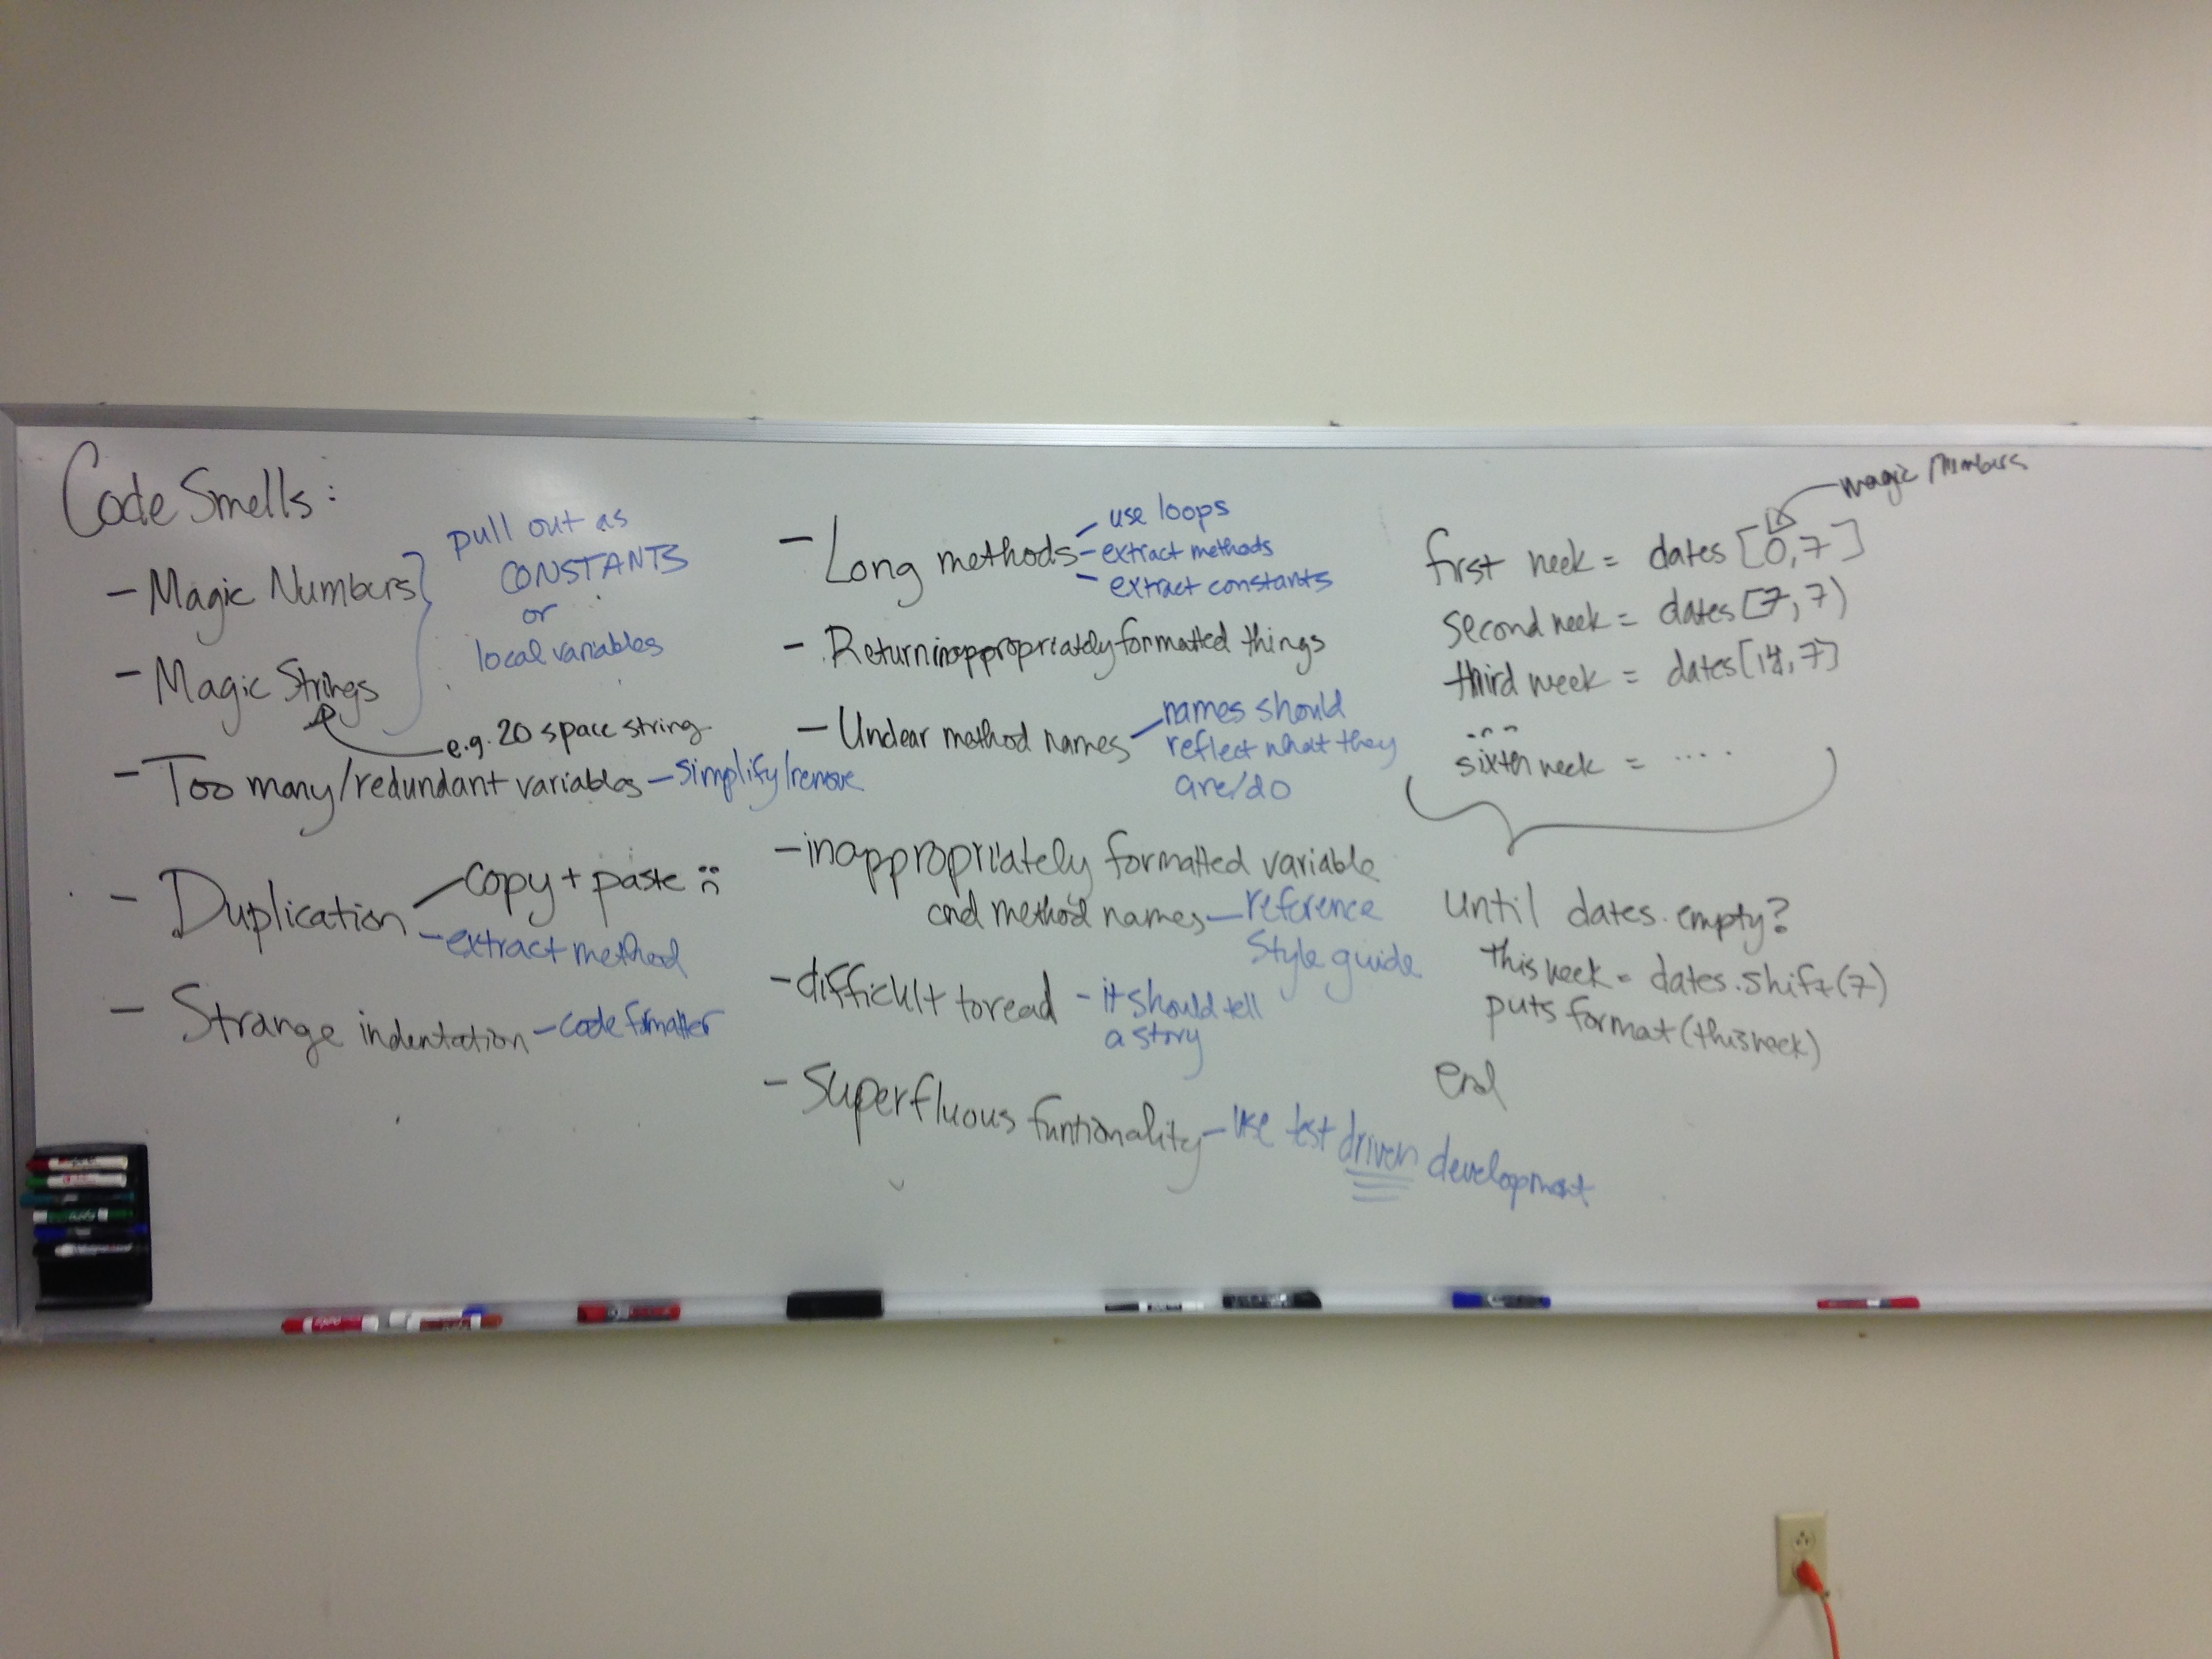 Code Smells:
- Magic Numbers
- Magic Strings
pull out as
CONSTANTS
or
local variables
e.g. 20 space string
- Too many/redundant variables - simplify/remove
- Duplication
- copy + paste :(
- extract method
- Strange indentation - code formatter
- Long methods
- use loops
- extract methods
- extract constants
- Return inappropriately formatted things
- Unclear method names
- names should
reflect what they
are/do
- inappropriately formatted variable
and method names - reference
style guide
- difficult to read - it should tell
a story
- Superfluous funtionality - use test driven development
magic numbers
first week = dates [0,7]
second week = dates [7,7)
third week = dates [14,7]
...
sixth week = ....
until dates.empty?
this week = dates.shift(7)
puts format(this week)
end